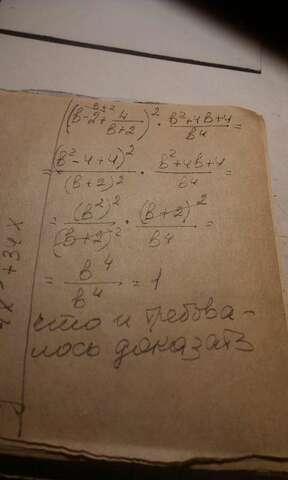 (в-2+4/(в+2))² · (в²+4в+4)/в⁴ =
= (в²-4+4)²/(в+2)² · (в²+4в+4)/в⁴ =
= (в²)²/(в+2)² · (в+2)²/в⁴ =
= в⁴/в⁴ = 1
что и требова-
лось доказать
+34x